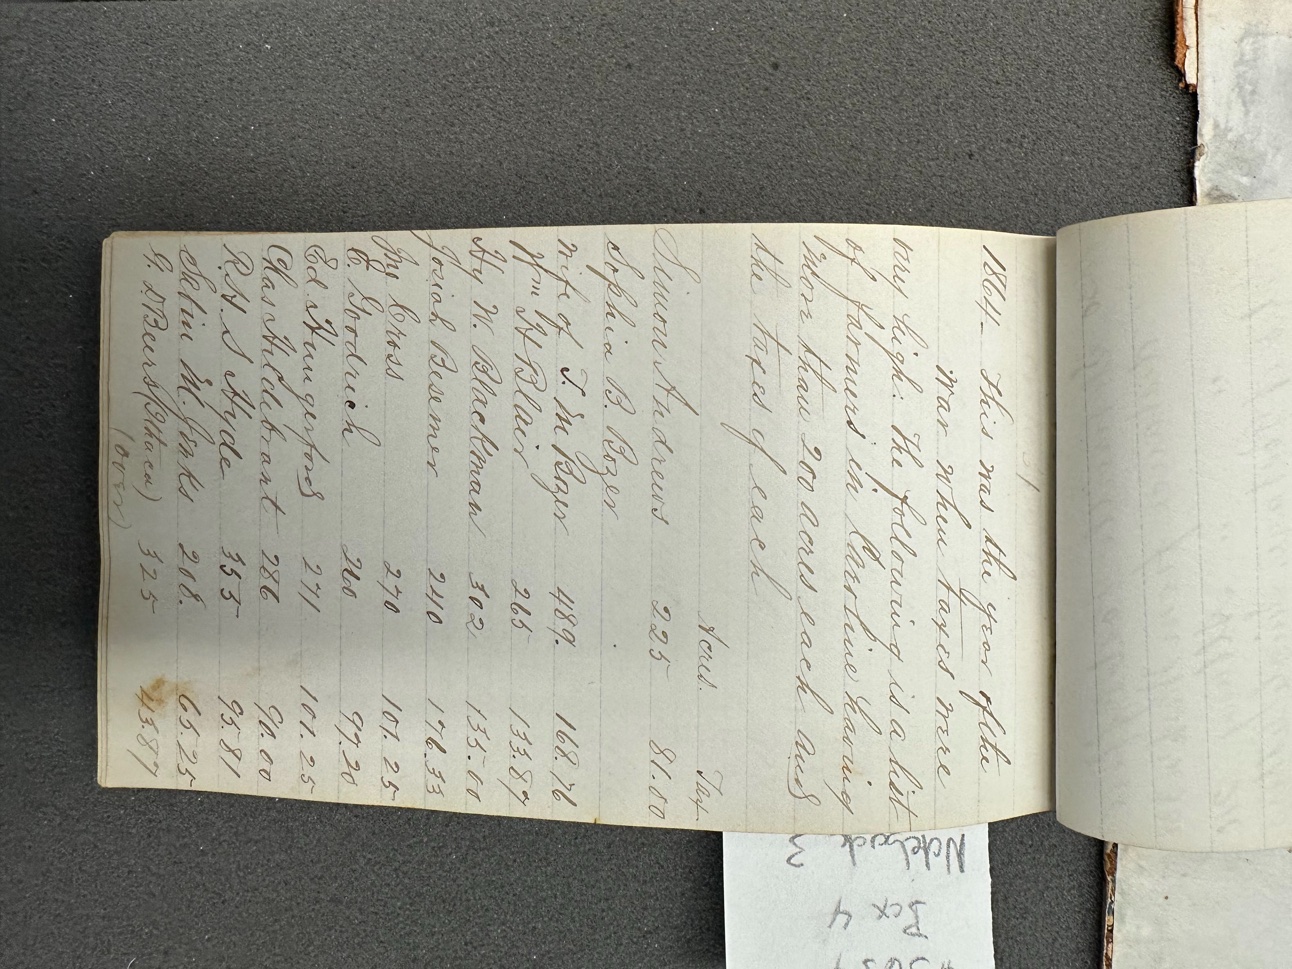 1864. This was the year of the
War when taxes were
very high. The following is a list
of farmers in Caroline having
more than 200 acres each and
the taxes of each
Acres. Tax
Simon Andrews 225 81.00
Sophia B. Bozer
wife of J. M Bozer 489. 168.76
Wm H Blair 265 133.87
Hy W. Blackman 302 135.00
Josiah Besemer 240 176.33
Jno Cross 270 101.25
C. Goodrich 260 97.20
Ed Hungerford 271 101.25
Chas Hildebrant 286 90.00
R. H. S Hyde 355 95.81
Selin M. Jinks 208. 65.25
G. D Beers (Ithaca) 325 43.87
(over)
Notebook 3
Box 4